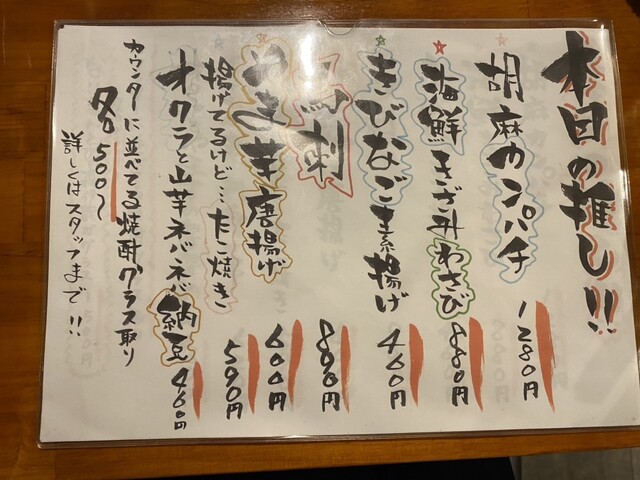 本日の推し!!
胡麻カンパチ 1280円
海鮮きざみわさび 880円
きびなご素揚げ 460円
馬刺 890円
やま芋唐揚げ 600円
揚げてるけど…たこ焼き 590円
オクラと山芋ネバネバ納豆 460円
カウンターに並べてる焼酎グラス取り
各500〜
詳しくはスタッフまで!!